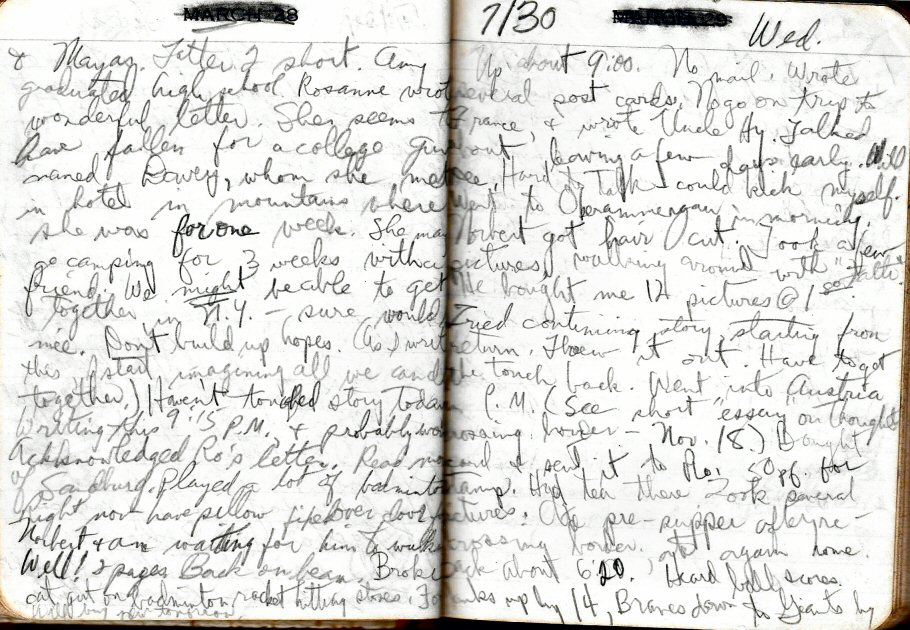 MARCH 28
& Mayan. Latter 2 short. Amy
graduated high school. Rosanne wrote
wonderful letter. She seems to
have fallen for a college guy
named Dewey, whom she met
in hotel in mountains where
she was for one week. She may
go camping for 3 weeks with a
friend. We might be able to get
together in N.Y. – sure would
nice. Don't build up hopes. (As I write
this I start imagining all we can do
together.) Haven't touched story today.
Writing this 9:15 P.M. & probably
Acknowledged Ro's letter. Read
of Sandburg. Played a lot of badminton.
Right now have pillow over door
Norbert & am waiting for him to walk
Well! 2 pages. Back on beam. Broke
cat gut on badminton racket hitting stones.
7/30 Wed.
Up about 9:00. No mail. Wrote
several post cards. No go on trip to
France, & wrote Uncle Hy. Talked
out, leaving a few days early. Will
see. Hard to talk – could kick myself.
Went to Oberammergau in morning.
Norbert got hair cut. Took a few
pictures, walking around with
He bought me 12 pictures @ 1
Tried continuing story starting from
return. Threw it out. Have to get
the touch back. Went into Austria
P.M. (See short "essay" on thoughts
crossing border – Nov. 18.) Bought
card & sent it to Ro. 50 pf. for
stamp. Had tea there. Took several
pictures. Also pre-supper
crossing border. again home.
back about 6:20. Heard ball scores.
Yanks up by 14, Braves down to Giants by